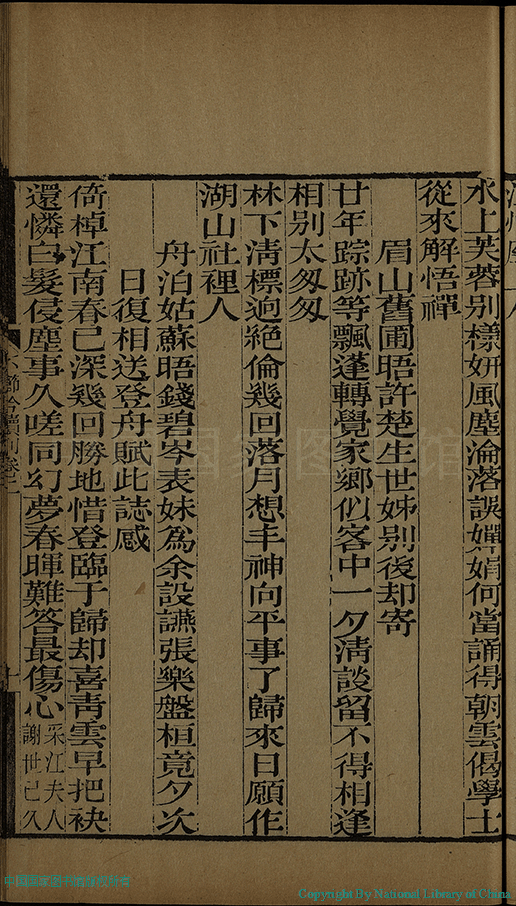 水上芙蓉別樣妍風塵淪落誤嬋娟何當誦得朝雲偈學士
從來解悟禪
眉山舊圃晤許楚生世姊別後却寄
廿年踪跡等飄蓬轉覺家鄉似客中一夕淸談留不得相逢
相別太匆匆
林下淸標逈絕倫幾回落月想丰神向平事了歸來日願作
湖山社裡人
舟泊姑蘇晤錢碧岑表妹為余設讌張樂盤桓竟夕次
日復相送登舟賦此誌感
倚棹江南春已深幾回勝地惜登臨于歸却喜靑雲早把袂
還憐白髮侵塵事久嗟同幻夢春暉難答最傷心采江夫人
謝世已久
Copyright By National Library of China